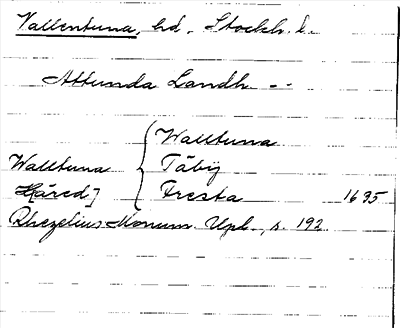 Vallentuna, hd, Stockh. l.
Attunda Landh. --
Walltuna
Walltuna { Täby
Häred] Fresta 1635
Rhezelius Monum. Upl., s. 192.